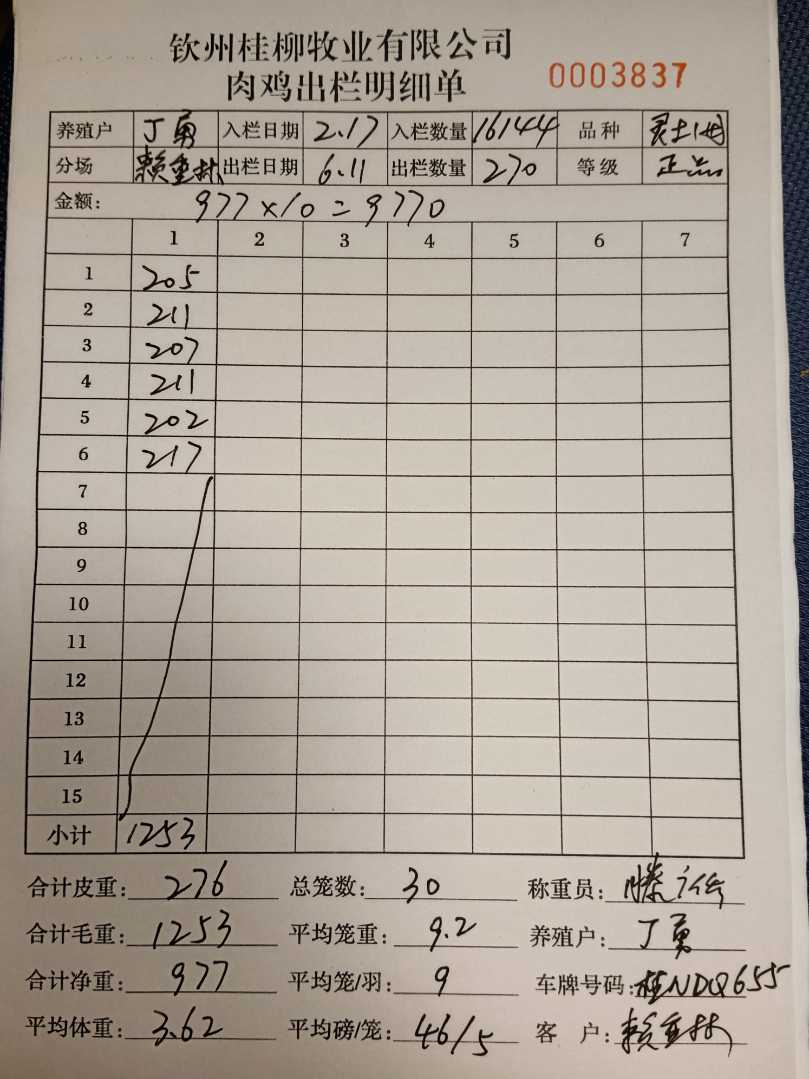 钦州桂柳牧业有限公司
肉鸡出栏明细单 0003837
养殖户 丁勇 入栏日期 2.17 入栏数量 16144 品种 灵土1母
分场 赖重林 出栏日期 6.11 出栏数量 270 等级 正品
金额: 977×10=9770
1 2 3 4 5 6 7
1 205
2 211
3 207
4 211
5 202
6 217
7
8
9
10
11
12
13
14
15
小计 1253
合计皮重: 276 总笼数: 30 称重员: 滕
合计毛重: 1253 平均笼重: 9.2 养殖户: 丁勇
合计净重: 977 平均笼/羽: 9 车牌号码: 桂NDQ655
平均体重: 3.62 平均磅/笼: 46/5 客户: 赖重林